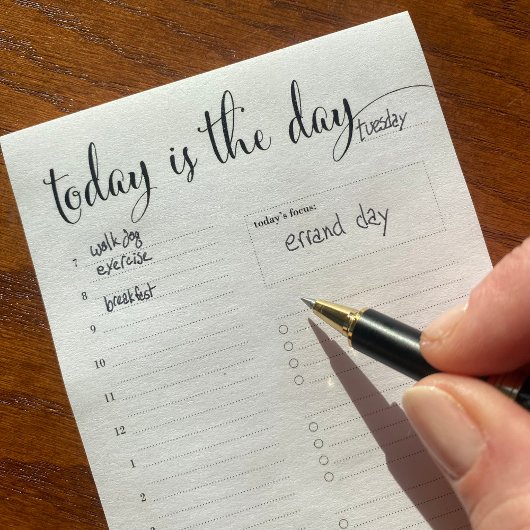 today is the day
tuesday
today's focus:
errand day
7 walk dog
exercise
8
breakfast
9
10
11
12
1
2
3